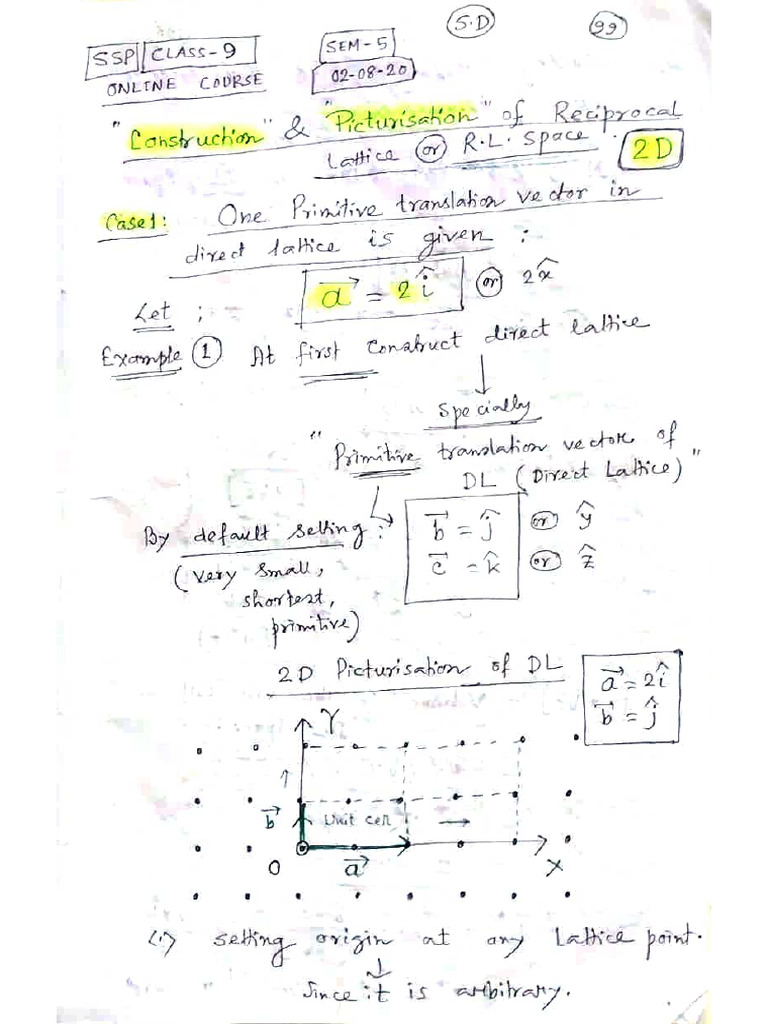 S.D 99
SSP CLASS-9 SEM-5
ONLINE COURSE 02-08-20
"Construction" & "Picturisation" of Reciprocal
Lattice (or) R.L. Space. 2D
Case1: One Primitive translation vector in
direct lattice is given:
Let; a⃗ = 2î (or) 2x̂
Example (1) At first construct direct lattice
↓
Specially
"Primitive translation vectors of
DL (Direct Lattice)"
By default setting: b⃗ = ĵ (or) ŷ
(very small, c⃗ = k̂ (or) ẑ
shortest,
primitive)
2D Picturisation of DL a⃗ = 2î
b⃗ = ĵ
Y
b⃗ Unit cell →
O a⃗ X
(.) setting origin at any Lattice point.
↓
Since it is arbitrary.